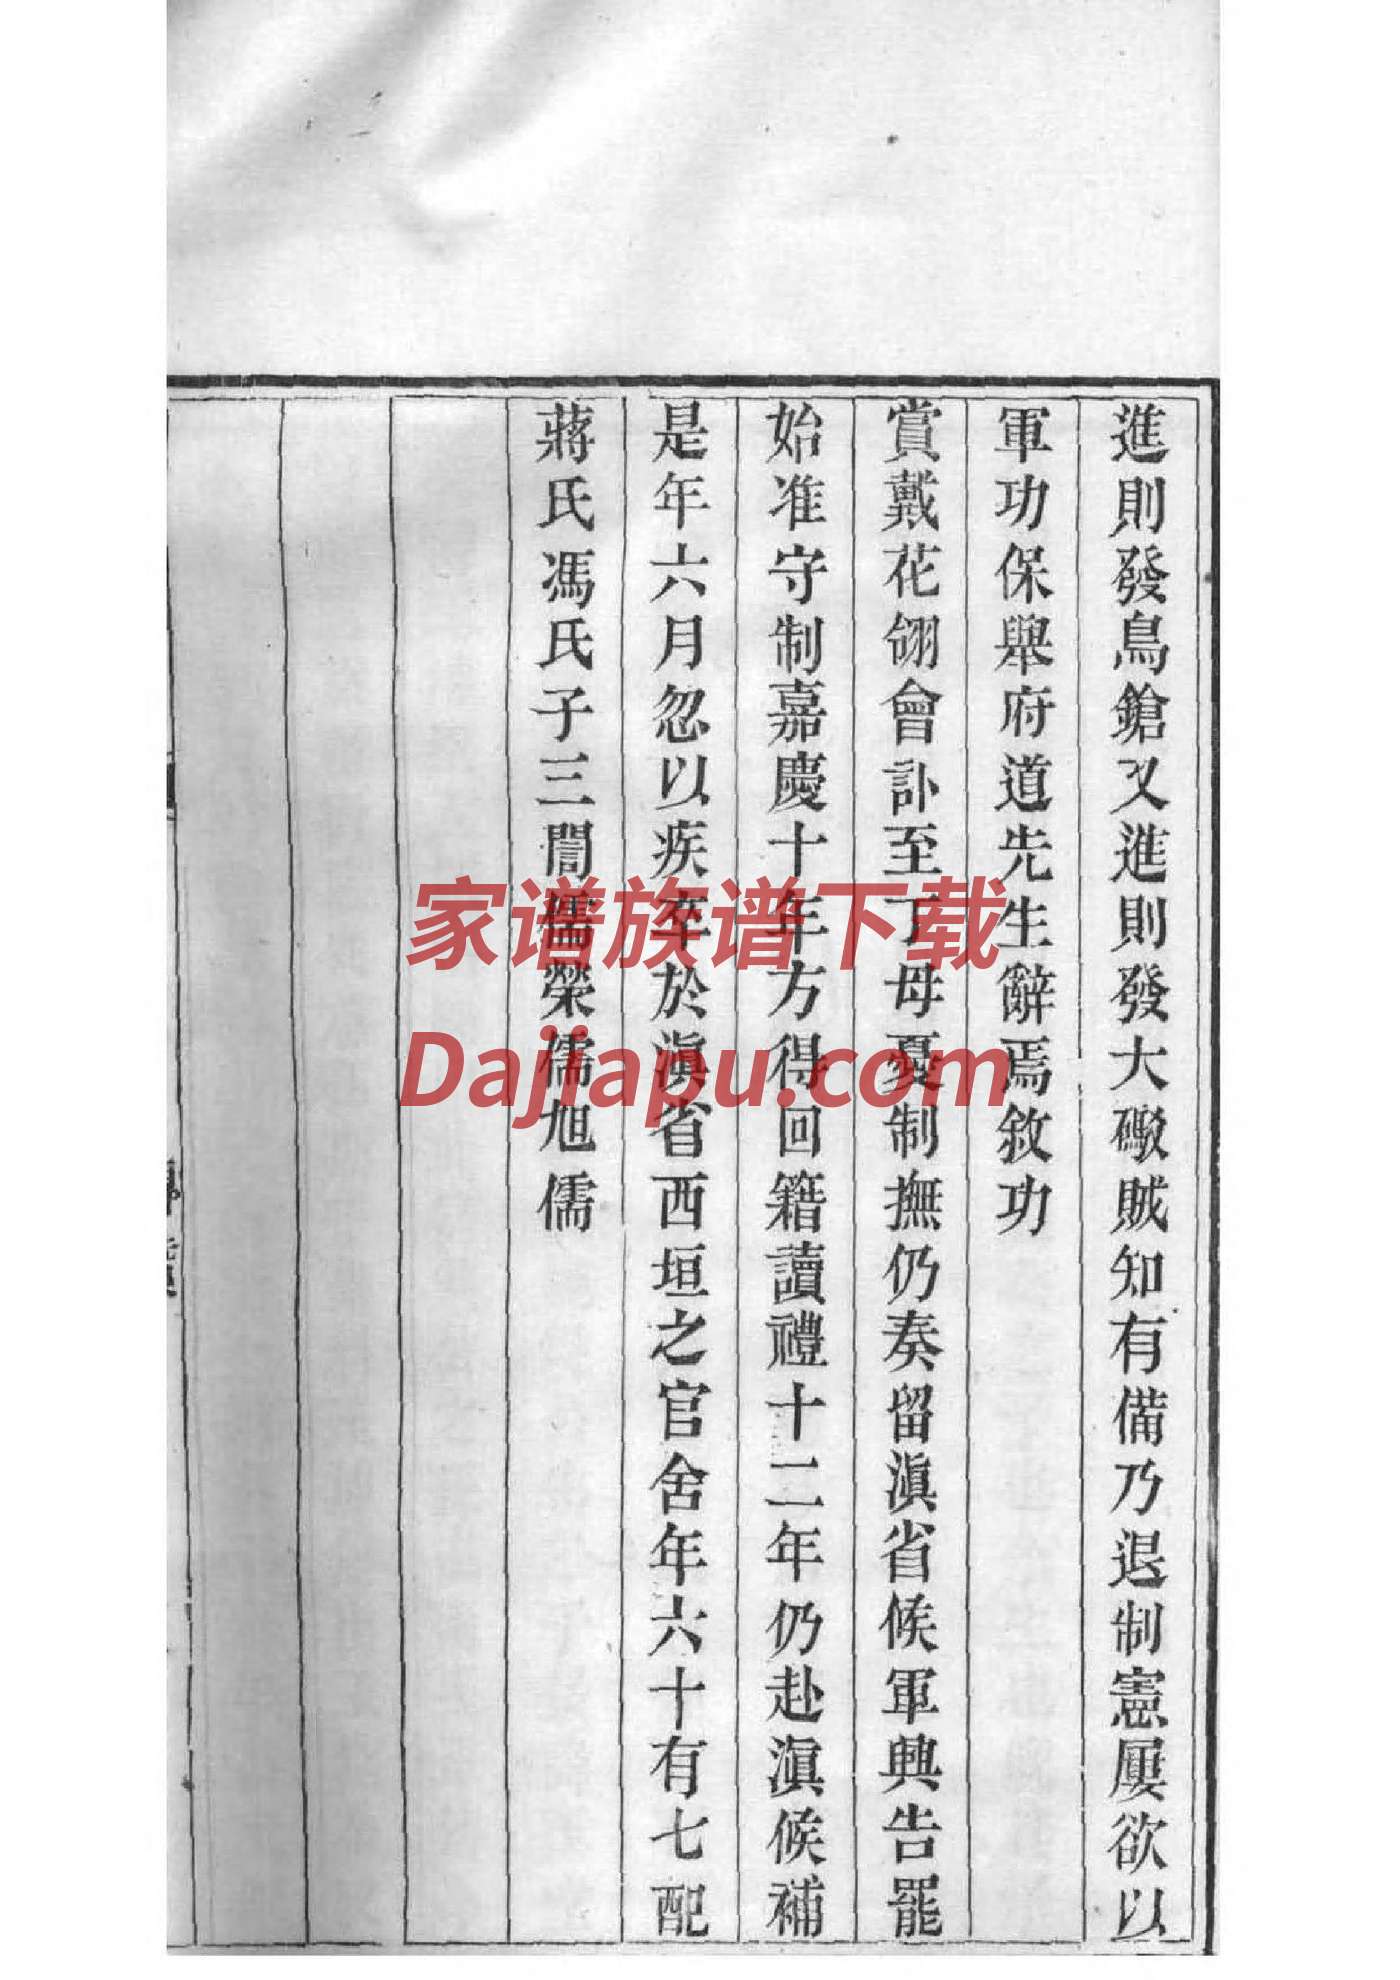 進則發鳥鎗又進則發大礮賊知有備乃退制憲屢欲以
軍功保舉府道先生辭焉敘功
賞戴花翎會訃至丁母憂制撫仍奏留滇省候軍興告罷
始准守制嘉慶十年方得回籍讀禮十二年仍赴滇候補
是年六月忽以疾卒於滇省西垣之官舍年六十有七配
蔣氏馮氏子三誾儒榮儒旭儒
家谱族谱下载
Dajiapu.com